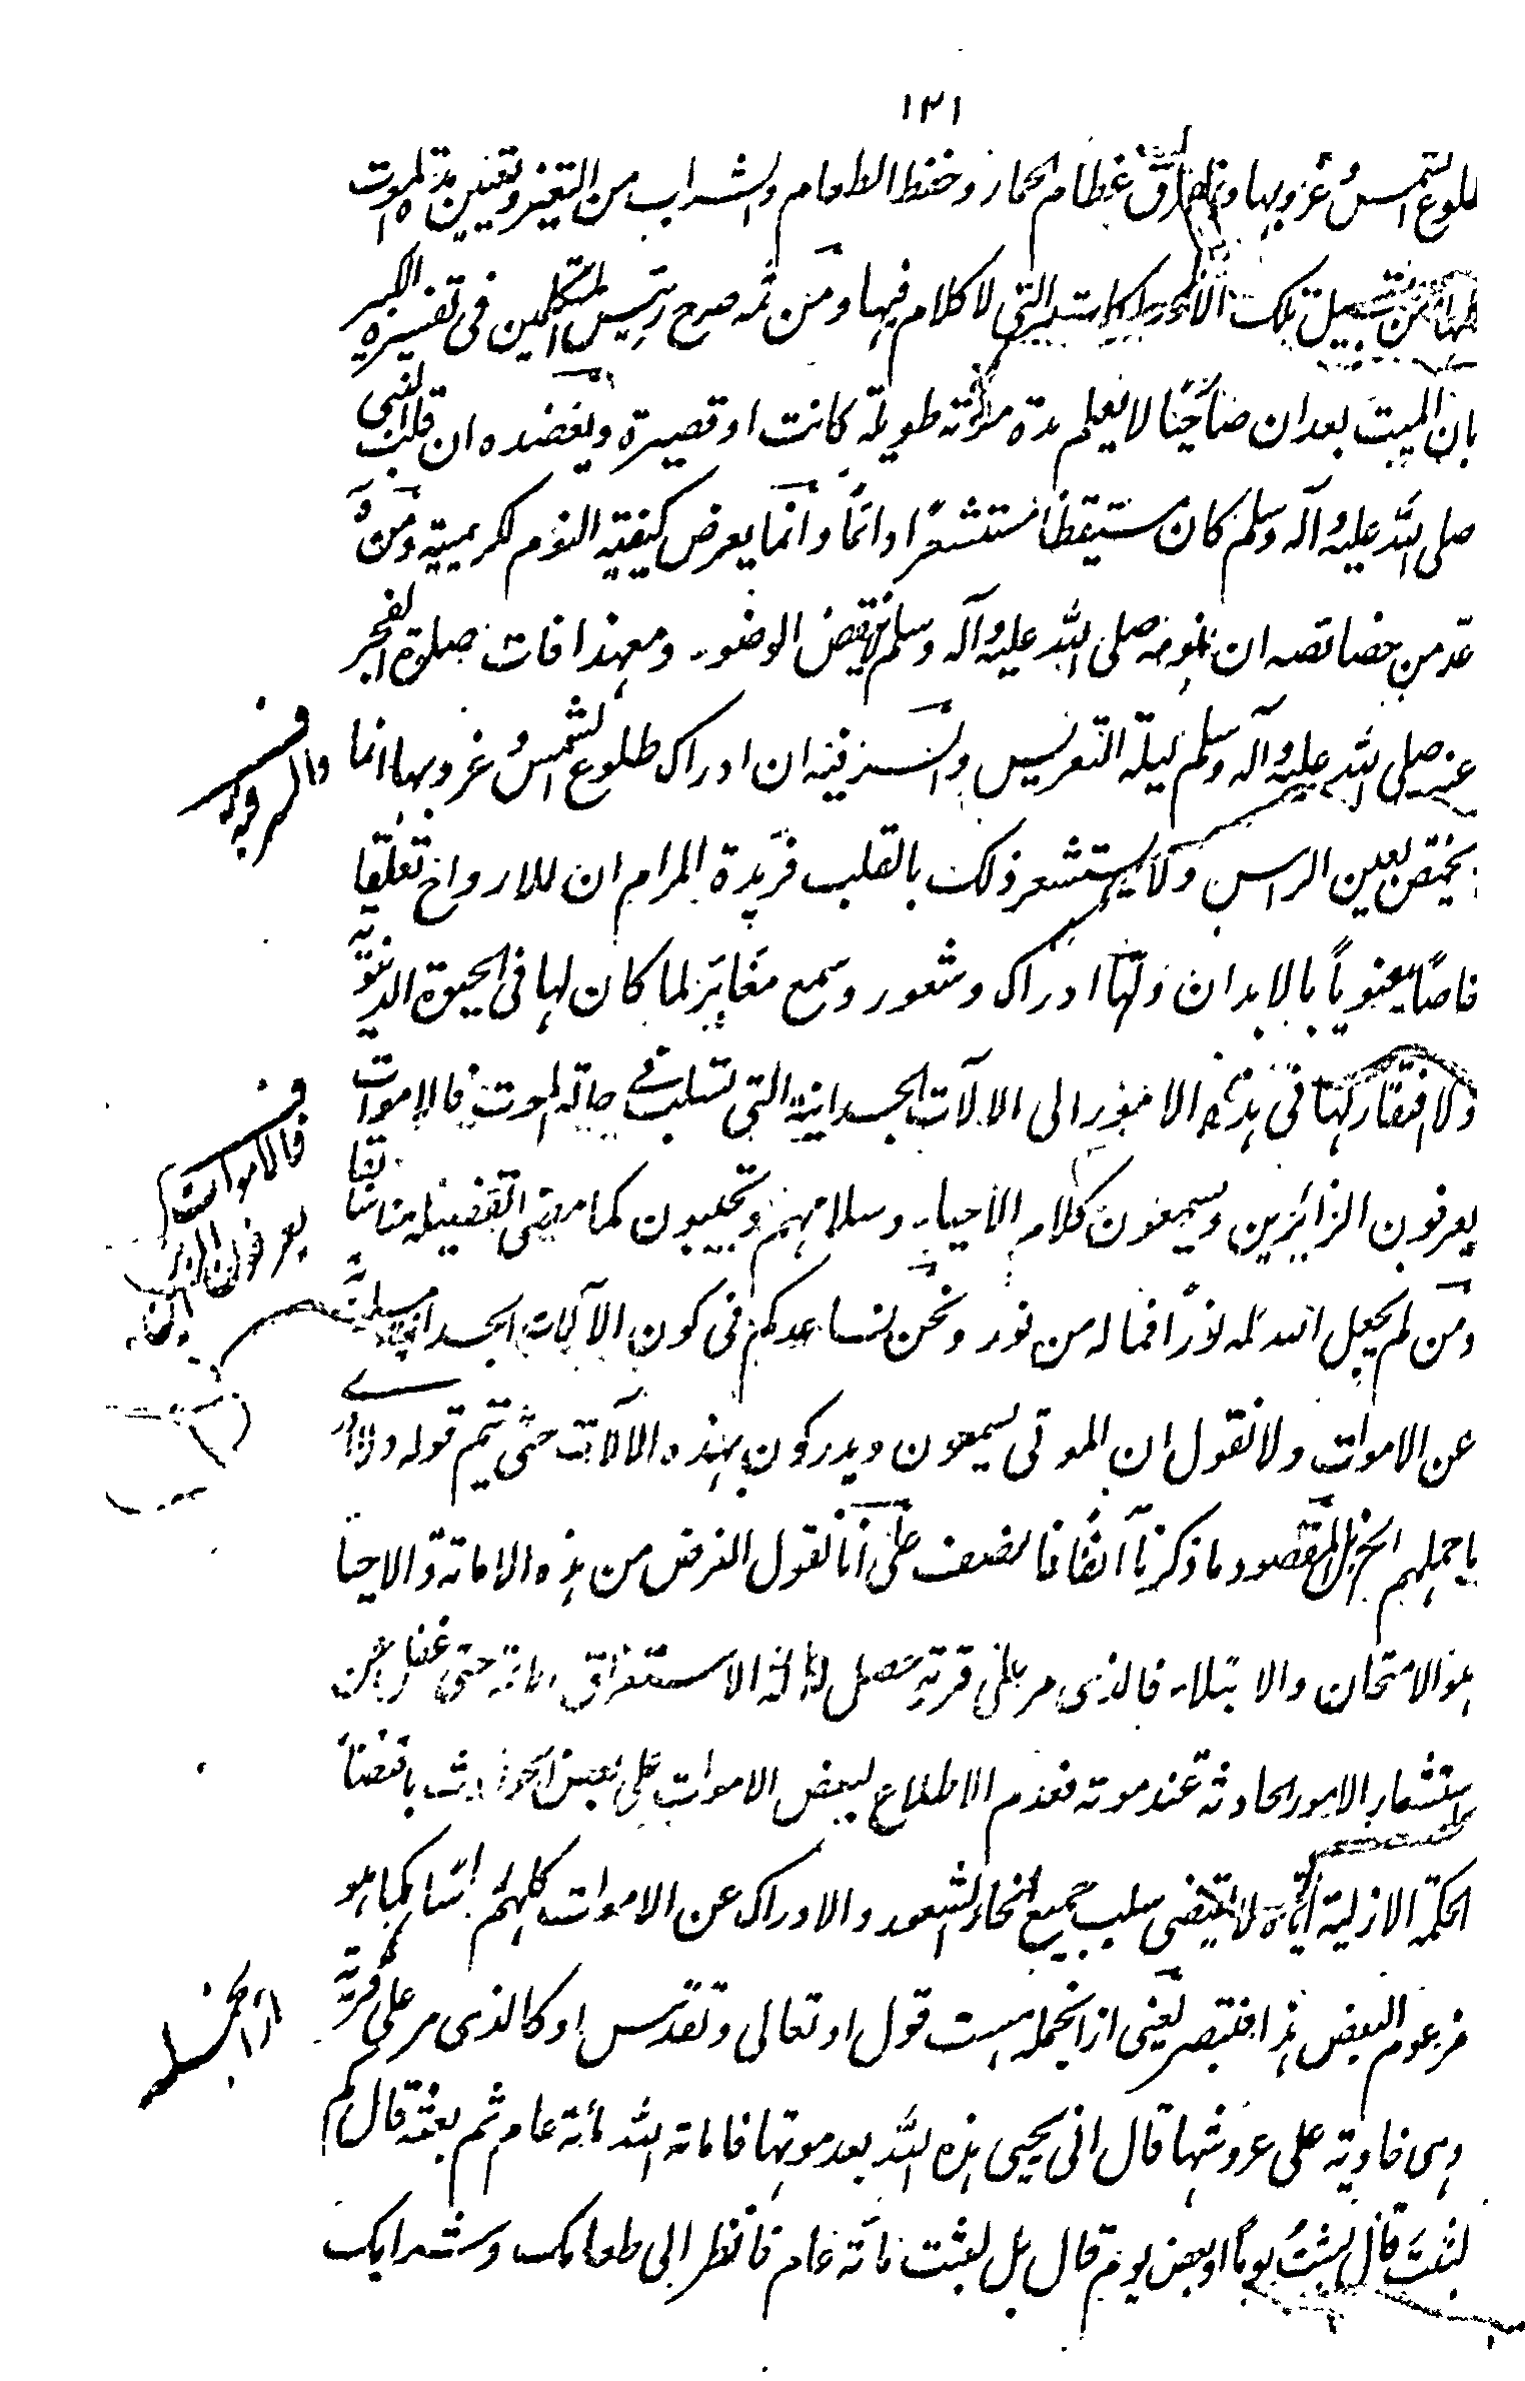 ١٢١
طلوع الشمس وغروبها وتفرق عظام الحمار وحفظ الطعام والشراب من التغير وتعيين مدة الموت
من قبيل تلك الامور التي لا كلام فيها ومن ثمه صرح رئيس المتكلمين في تفسيره الكبير
بان الميت بعد ان صار حيًا لا يعلم مدة موته طويلة كانت او قصيرة ويعضده ان قلب النبي
صلى الله عليه وآله وسلم كان مستيقظًا مستشعرًا دائمًا وانما يعرض كيفية النوم لكريمتيه ومن
عدّ من خصائصه ان نومه صلى الله عليه وآله وسلم لا ينقض الوضوء ومعهذا فات صلوة الفجر
عنه صلى الله عليه وآله وسلم ليلة التعريس والسر فيه ان ادراك طلوع الشمس وغروبها انما
يختص بعين الراس ولا يستشعر ذلك بالقلب فزبدة المرام ان للارواح تعلقا
خاصًا معنويًا بالابدان ولها ادراك وشعور وسمع مغاير لما كان لها فى الحيوة الدنيوية
ولا افتقار لها في هذه الامور الى الالآت الجسدانية التي تسلب في حالة الموت فالاموات
يعرفون الزائرين ويسمعون كلام الاحياء وسلامهم ويجيبون كما مضى تفضيله منا سابقا
ومن لم يجعل الله له نورًا فما له من نور ونحن نساعدكم فى كون الآلات الجسدانية مسلوبة
عن الاموات ولا نقول ان الموتى يسمعون ويدركون بهذه الآلات حتى يتم قوله
باجملهم الخ بل المقصود ما ذكرنا آنفًا فانصف على انا نقول الغرض من هذه الاماتة والاحيا
هو الامتحان والابتلاء فالذى مر على قرية حصل له الاستغراق حتى غفل عن
استشعار الامور الحادثة عند موته فعدم الاطلاع لبعض الاموات على بعض الحوادث باقتضاء
الحكمة الازلية لا يقتضى سلب جميع انحاء الشعور والادراك عن الاموات كلهم كما هو
مزعوم البعض هذا فتبصر يعنى ازانجمله هست قول او تعالى وتقدس او كالذى مر على قرية
وهى خاوية على عروشها قال انى يحيى هذه الله بعد موتها فاماته الله مائة عام ثم بعثه قال كم
لبثت قال لبثت يومًا او بعض يوم قال بل لبثت مائة عام فانظر الى طعامك وشرابك
والسر فيه
فالاموات
يعرفون الزائرين
ازانجمله